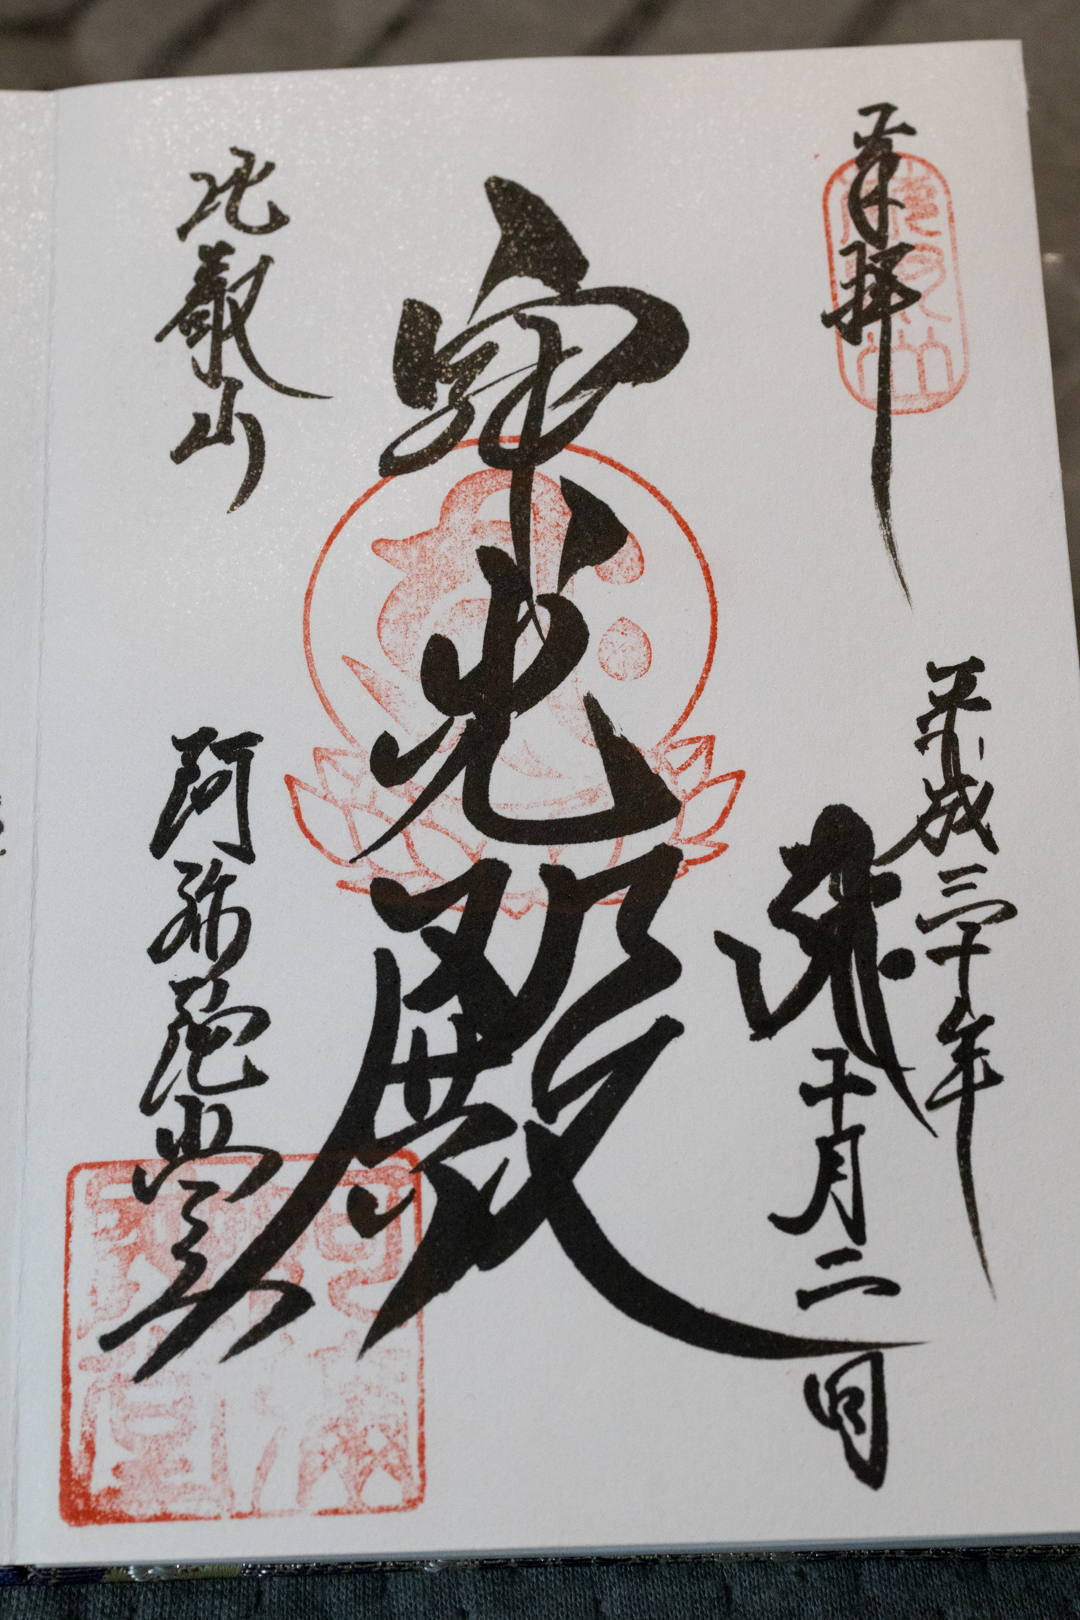 奉拝
平成三十年
十月二日
寂光殿
比叡山
阿弥陀堂
阿彌陀堂